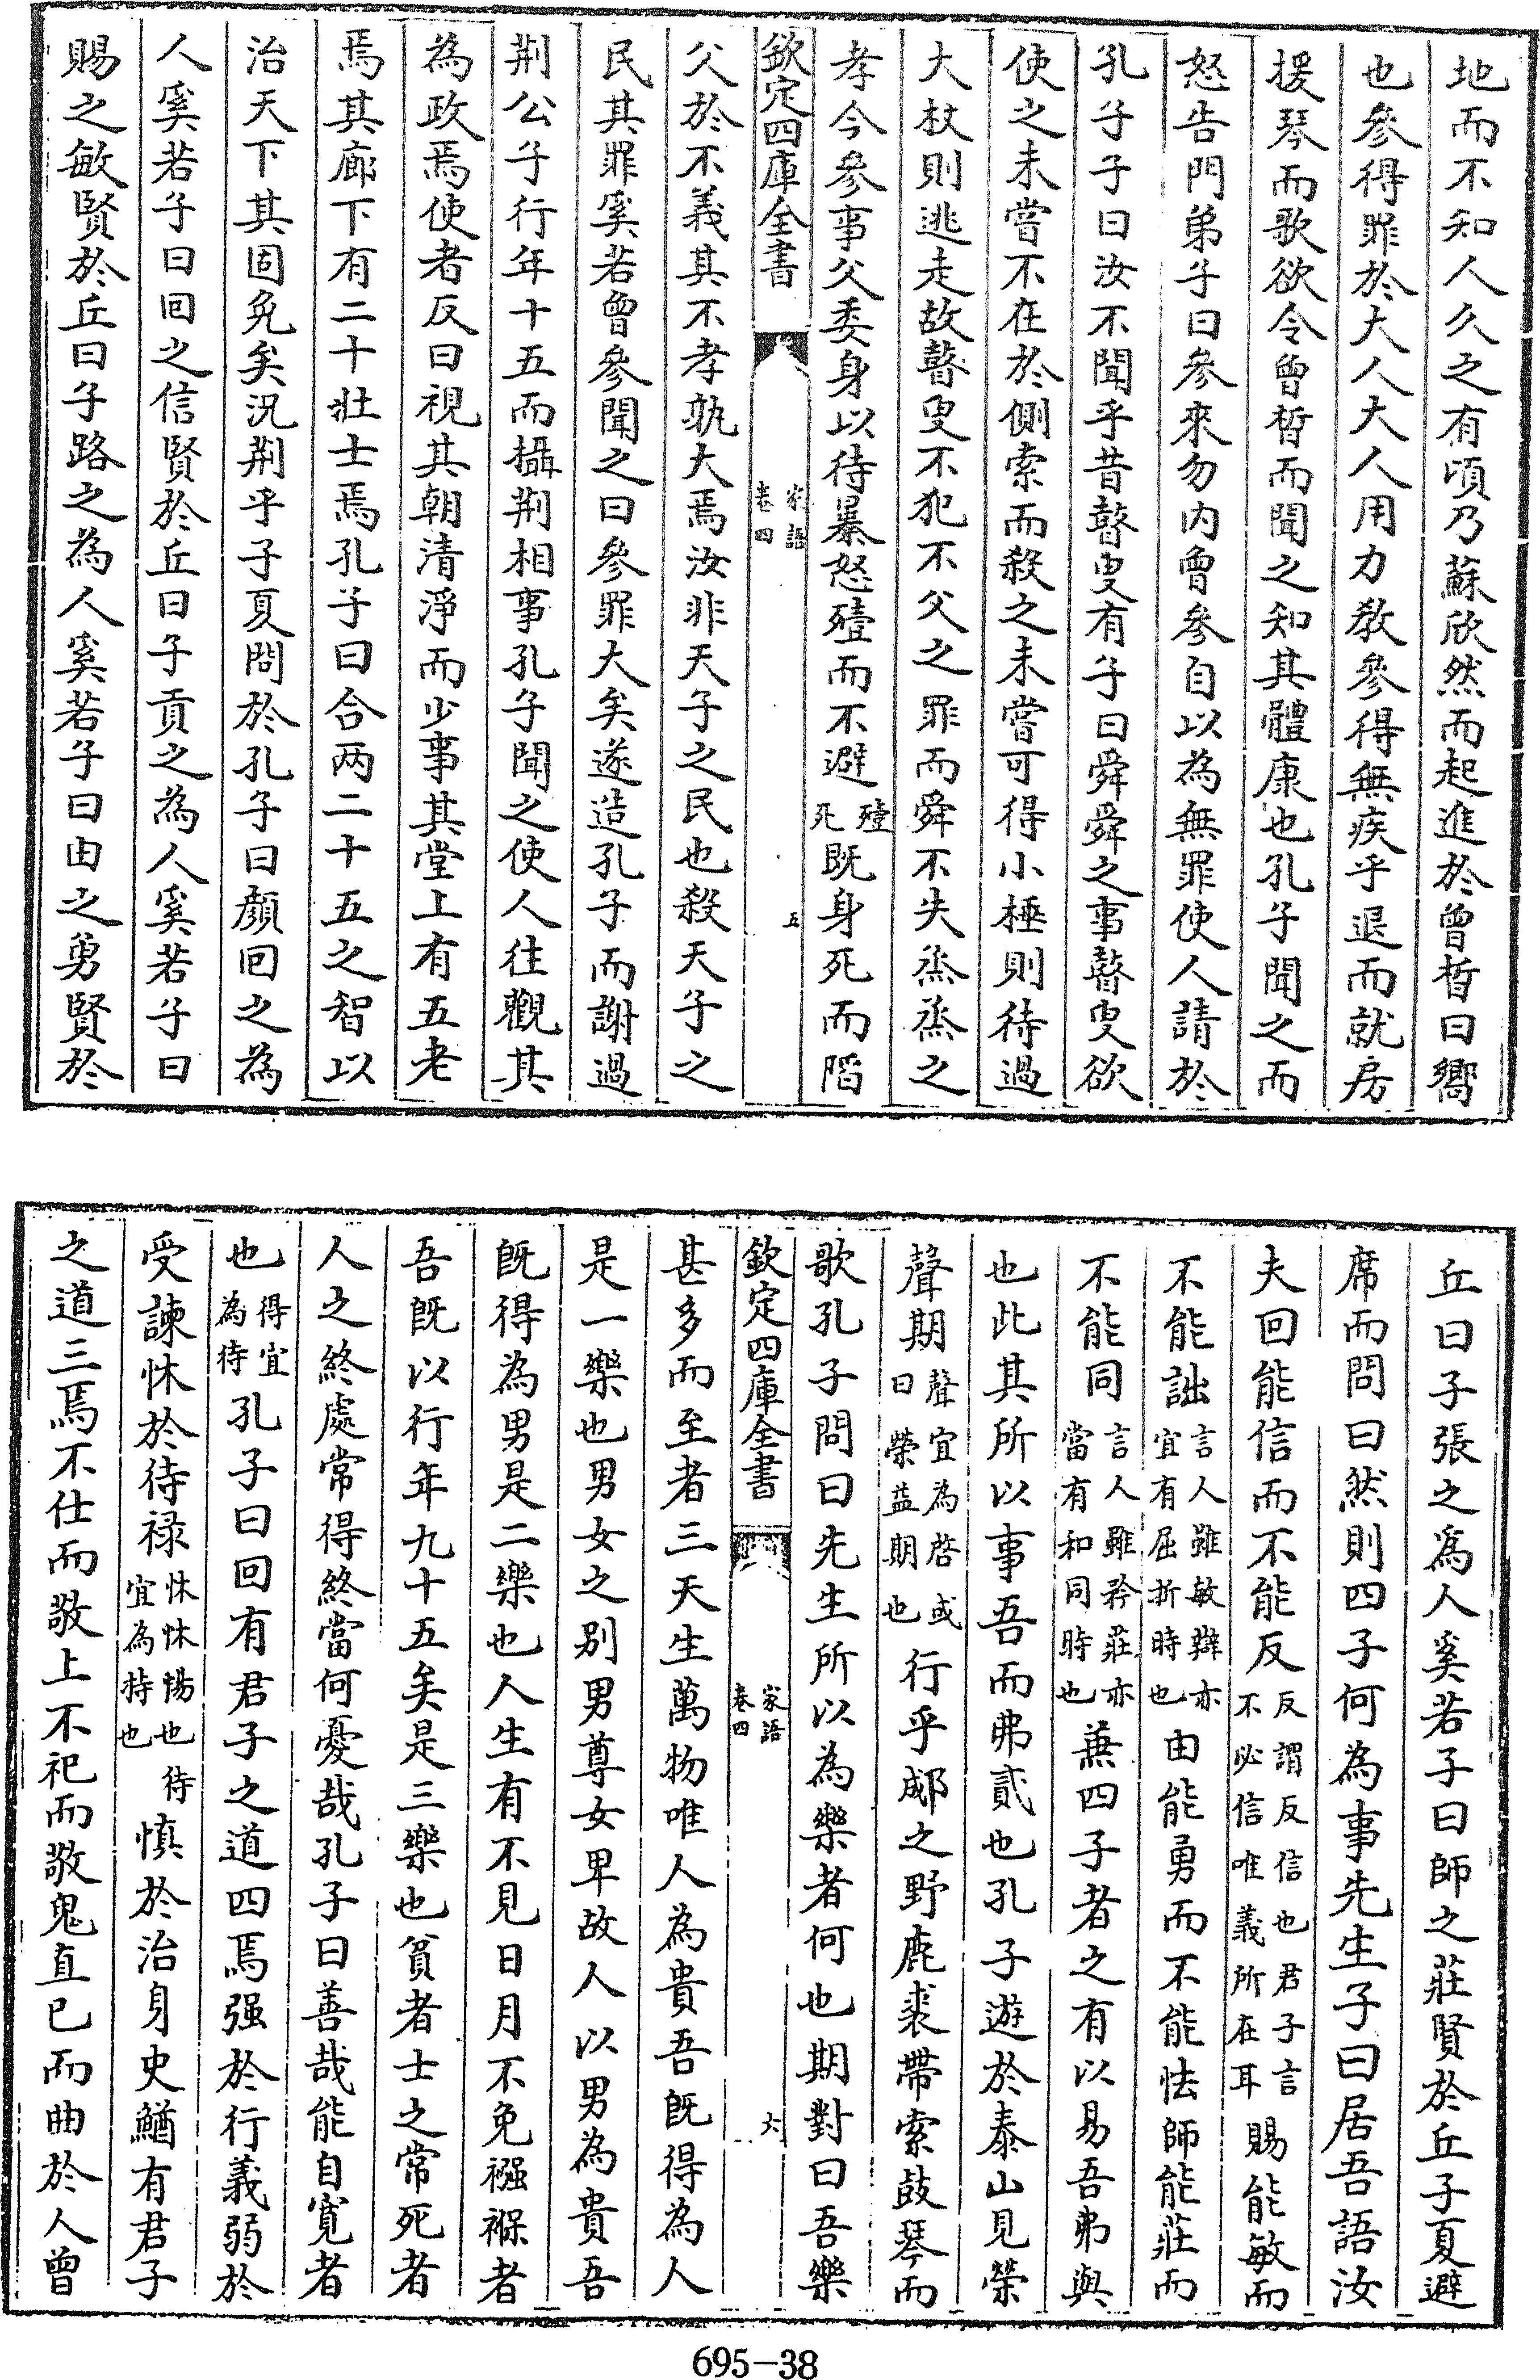 地而不知人久之有頃乃蘇欣然而起進於曾晳曰嚮
也參得罪於大人大人用力教參得無疾乎退而就房
援琴而歌欲令曾晳而聞之知其體康也孔子聞之而
怒告門弟子曰參來勿内曾參自以為無罪使人請於
孔子子曰汝不聞乎昔瞽叟有子曰舜舜之事瞽叟欲
使之未嘗不在於側索而殺之未嘗可得小棰則待過
大杖則逃走故瞽叟不犯不父之罪而舜不失烝烝之
孝今參事父委身以待暴怒殪而不避殪死既身死而陷
欽定四庫全書
家語
卷四
五
父於不義其不孝孰大焉汝非天子之民也殺天子之
民其罪奚若曾參聞之曰參罪大矣遂造孔子而謝過
荆公子行年十五而攝荆相事孔子聞之使人往觀其
為政焉使者反曰視其朝清淨而少事其堂上有五老
焉其廊下有二十壯士焉孔子曰合两二十五之智以
治天下其固免矣況荆乎子夏問於孔子曰顔回之為
人奚若子曰回之信賢於丘曰子貢之為人奚若子曰
賜之敏賢於丘曰子路之為人奚若子曰由之勇賢於
丘曰子張之為人奚若子曰師之莊賢於丘子夏避
席而問曰然則四子何為事先生子曰居吾語汝
夫回能信而不能反反謂反信也君子言不必信唯義所在耳賜能敏而
不能詘言人雖敏辯亦宜有屈折時也由能勇而不能怯師能莊而
不能同言人雖矜莊亦當有和同時也兼四子者之有以易吾弗與
也此其所以事吾而弗貳也孔子遊於泰山見榮
聲期聲宜為啓或曰榮益期也行乎郕之野鹿裘帶索鼓琴而
歌孔子問曰先生所以為樂者何也期對曰吾樂
欽定四庫全書
家語
卷四
六
甚多而至者三天生萬物唯人為貴吾既得為人
是一樂也男女之别男尊女卑故人以男為貴吾
既得為男是二樂也人生有不見日月不免襁褓者
吾既以行年九十五矣是三樂也貧者士之常死者
人之終處常得終當何憂哉孔子曰善哉能自寛者
也得宜為待孔子曰回有君子之道四焉强於行義弱於
受諫怵於待禄怵怵惕也待宜為持也慎於治身史鰌有君子
之道三焉不仕而敬上不祀而敬鬼直已而曲於人曾
695-38